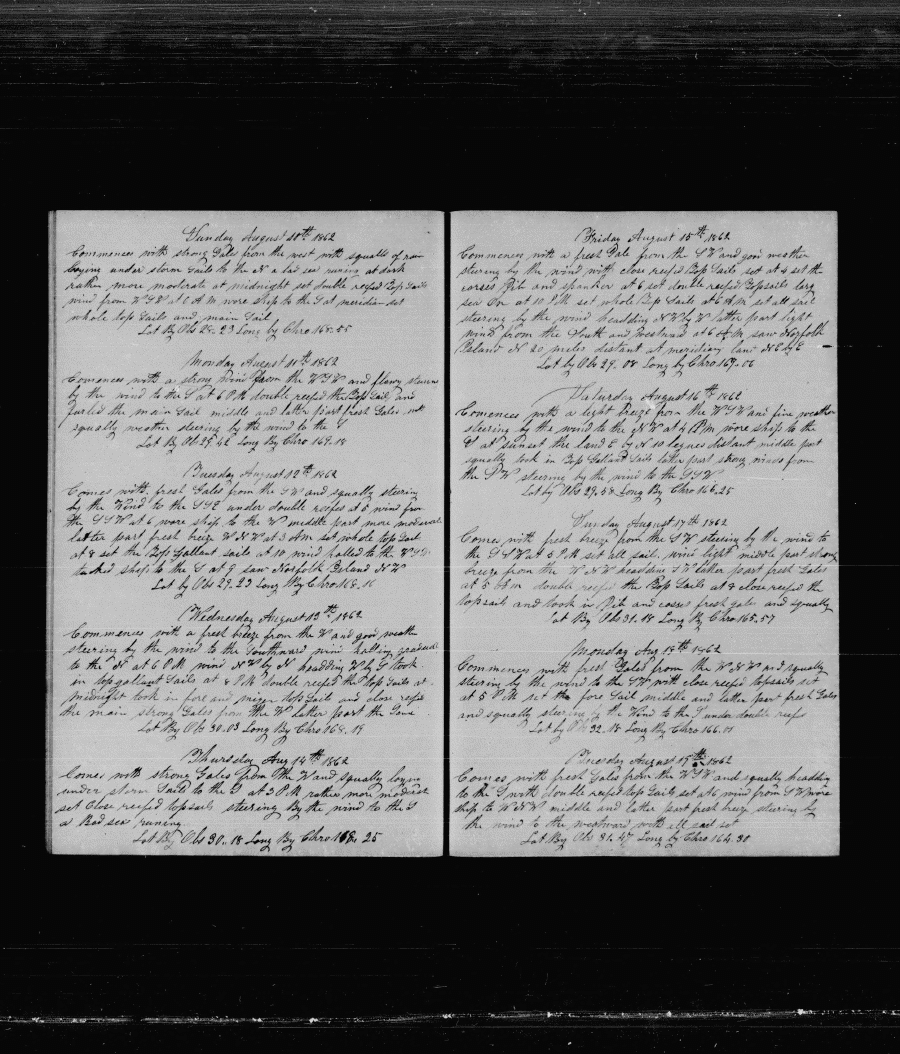 Sunday August 10th 1862
Commences with strong Gales from the west with squalls of rain
Laying under storm Sails to the N a bad sea runing at dark
rather more moderate at midnight set double reefed Top Sails
wind from WSW at 6 A M wore ship to the S at meridian set
whole top Sails and main Sail
Lat By Obs 29.23 Long by Chro 168.55
Monday August 11th 1862
Comences with a strong wind from the WSW and steering
by the wind to the S at 6 P M double reefed the Top Sails and
furled the main Sail middle and latter part fresh Gales and
squally weather steering by the wind to the S
Lat By Ob 29.42 Long By Chro 169.18
Tuesday August 12th 1862
Comes with fresh Gales from the SW and squally steering
by the Wind to the SSE under double reefes at 5 wind from
the SSW at 6 wore ship to the W middle part more moderate
latter part fresh breize WNW at 3 A M set whole top Sail
at 8 set the Top Gallant Sails at 10 wind halled to the WSW
tacked ship to the S at 9 saw Norfolk Island NW
Lat by Obs 29.23 Long By Chro 168.11
Wednesday August 13th 1862
Commences with a fresh breeze from the W and good weather
steering by the wind to the Southward wind halling gradual
to the N at 6 P M wind NW by N headding W by S took
in top gallant Sails at 8 P M double reefed the top Sails at
midnight took in fore and mizen top Sail and close reefed
the main strong Gales from the W latter part the Same
Lat By Obs 30.03 Long By Chro 168.19
Thursday Aug 14th 1862
Comes with strong Gales from the W and squally laying
under storm Sails to the S at 3 P M rather more modirat
set Close reefed topsails steering By the wind to the S
a Bad sea runing
Lat By Obs 30.18 Long By Chro 168.25
Friday August 15th 1862
Commences with a fresh Gale from the SW and good weather
steering by the wind with close reefed Top Sails set at 4 set the
corses Jib and spanker at 6 set double reefed Topsails larg
sea On at 10 P M set whole Top Sails at 6 A M set all sail
steering by the wind headding NW by W latter part light
wind from the South and Westward at 6 A M saw Norfolk
Island N 20 miles distant at meridian land NE by E
Lat by Obs 29.08 Long by Chro 167.06
Saturday August 16th 1862
Comences with a light breeze from the WSW and fine weather
steering by the wind to the NW at 4 P M wore ship to the
S at sunset the land E by N 10 legues distant middle part
squally took in Top Gallant Sails latter part strong winds from
the W steering by the wind to the SSW
Lat by Obs 29.58 Long By Chro 166.25
Sunday August 17th 1862
Comes with fresh breeze from the SW steering by the wind to
the SSW at 5 P M set all sail wind light middle part strong
breeze from the WNW headding SW latter part fresh Gales
at 5 A M double reefed the Top Sails at 8 close reefed the
topsail and took in Jib and corses fresh gale and squally
Lat By Obs 31.18 Long By Chro 165.57
Monday Aug 18th 1862
Commences with fresh Gales from the WNW and squally
steering by the wind to the SW with close reefed topsails set
at 5 P M set the fore Sail middle and latter part fresh Gales
and squally steering by the Wind to the S under double reefs
Lat by Ob 32.18 Long By Chro 166.01
Tuesday August 19th 1862
Comes with fresh Gales from the WSW and squally headding
to the S with double reefed top Sails set at 6 wind from SW wore
ship to WNW middle and latter part fresh breize steering by
the wind to the westward with all sail set
Lat By Obs 31.47 Long by Chro 164.30